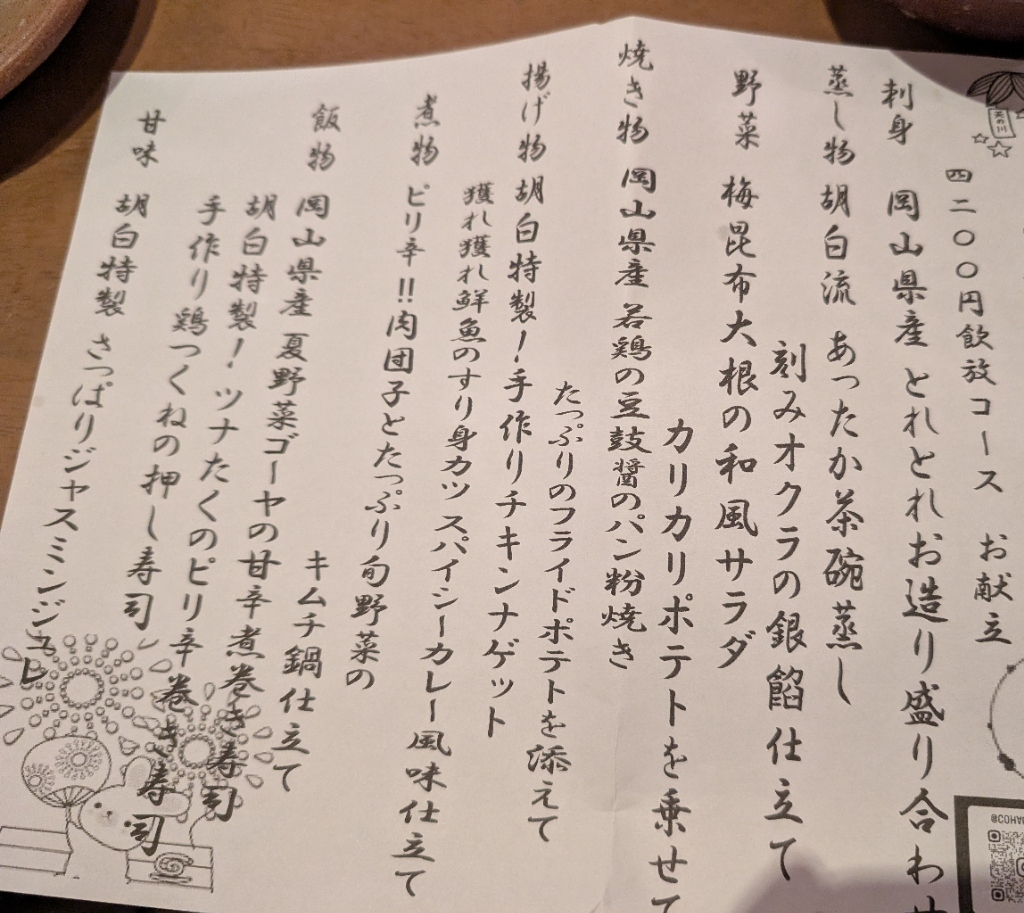 天の川
四二〇〇円飲放コース　お献立
刺身　岡山県産　とれとれお造り盛り合わせ
蒸し物　胡白流　あったか茶碗蒸し
刻みオクラの銀餡仕立て
野菜　梅昆布大根の和風サラダ
カリカリポテトを乗せて
焼き物　岡山県産　若鶏の豆鼓醤のパン粉焼き
たっぷりのフライドポテトを添えて
揚げ物　胡白特製！手作りチキンナゲット
獲れ獲れ鮮魚のすり身カツ　スパイシーカレー風味仕立て
煮物　ピリ辛!!肉団子とたっぷり旬野菜の
キムチ鍋仕立て
飯物　岡山県産　夏野菜ゴーヤの甘辛煮巻き寿司
胡白特製！ツナたくのピリ辛　巻き寿司
手作り鶏つくねの押し寿司
甘味　胡白特製　さっぱりジャスミンジュレ